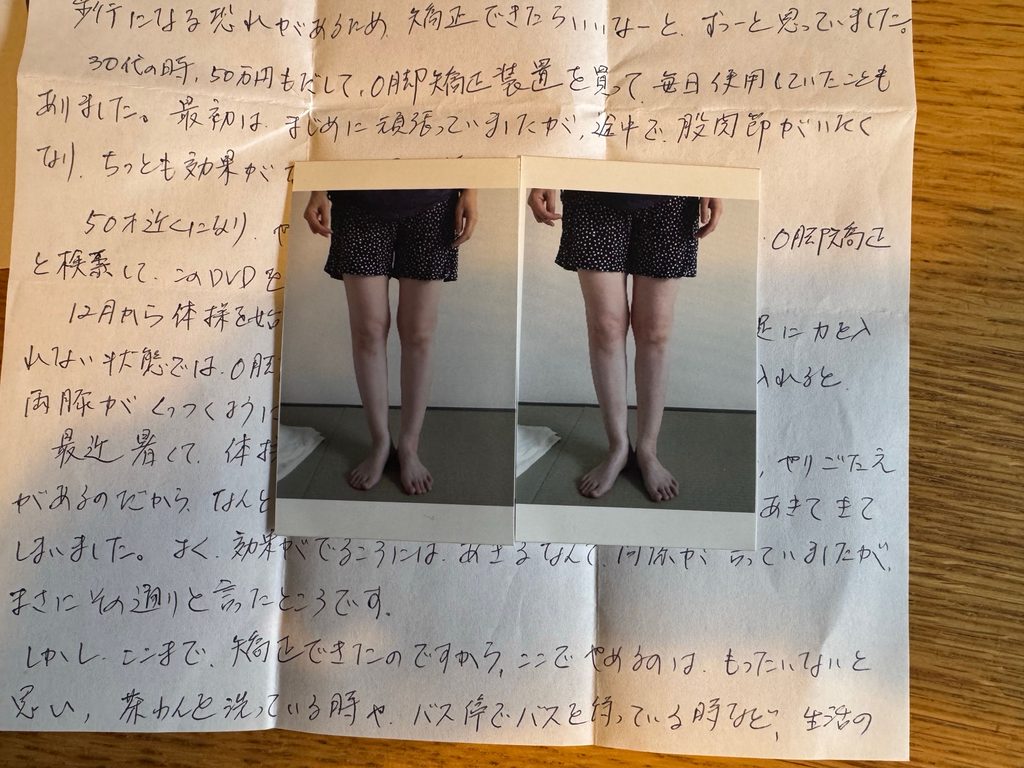 歩行になる恐れがあるため、矯正できたらいいなーと、ずっと思っていました。
30代の時、50万円もだして、O脚矯正装置を買って、毎日使用していたことも
ありました。最初は、まじめに頑張っていましたが、途中で、股関節がいたく
なり、ちっとも効果がで
50才近くになり、や
、O脚矯正
と検索して、このDVDを
12月から体操を始
足に力を入
れてない状態では、O脚
入れると、
両膝がくっつくように
最近暑くて、体操
、やりごたえ
があるのだから、なんと
あきて来て
しまいました。よく、効果がでるころには、あきるなんて、言っていましたが、
まさにその通りと言ったところです。
しかし、ここまで、矯正できたのですから、ここでやめるのは、もったいないと
思い、茶わんを洗っている時や、バス停でバスを待っている時など、生活の